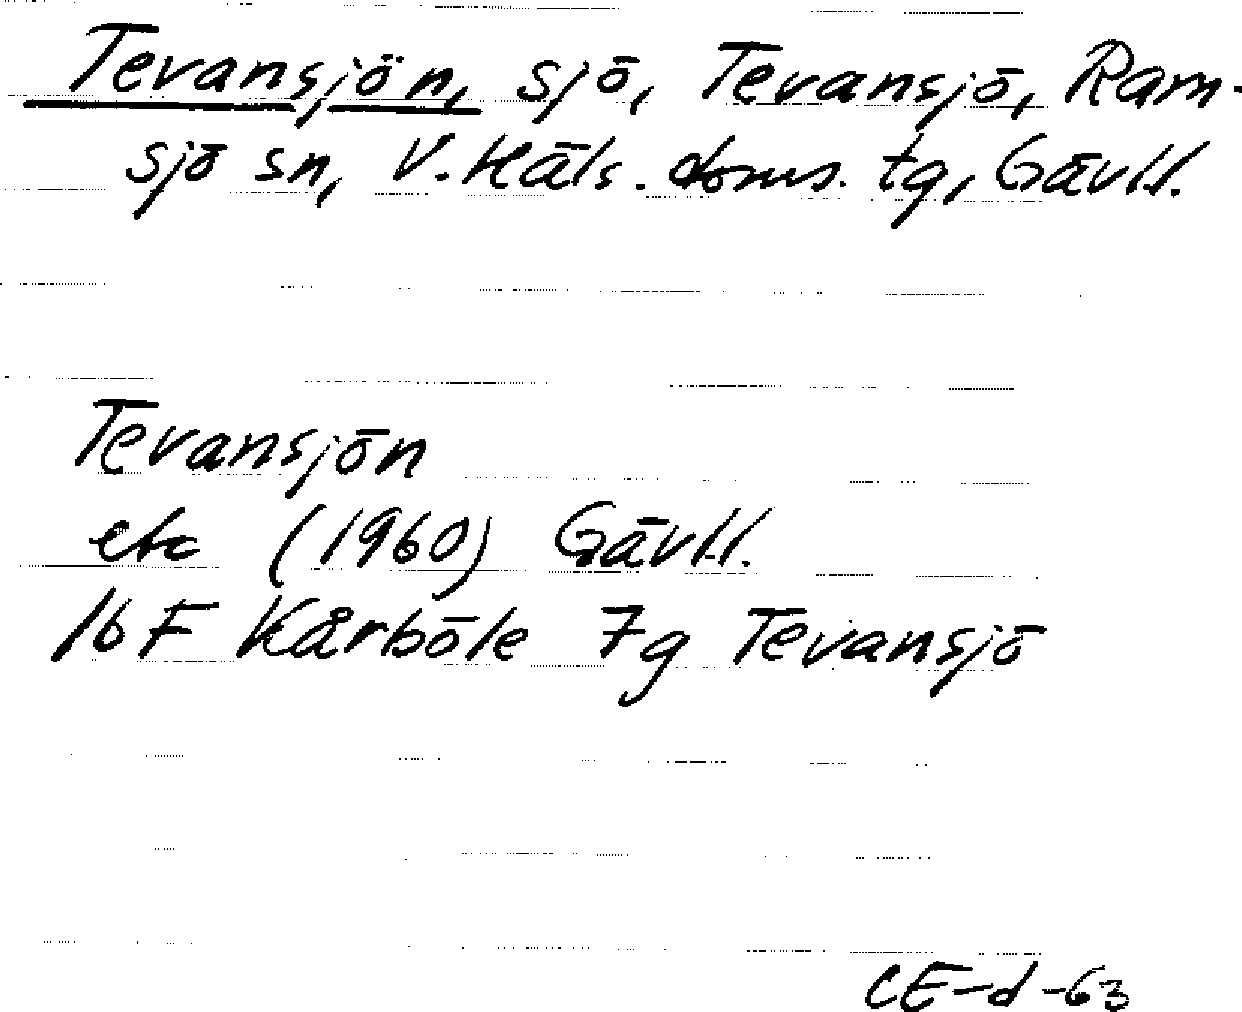 Tevansjön, sjö, Tevansjö, Ram-
sjö sn, V. Häls. doms. tg, Gävl.l.
Tevansjön
etc (1960) Gävl.l.
16 F Kårböle 7g Tevansjö
CE-d-63